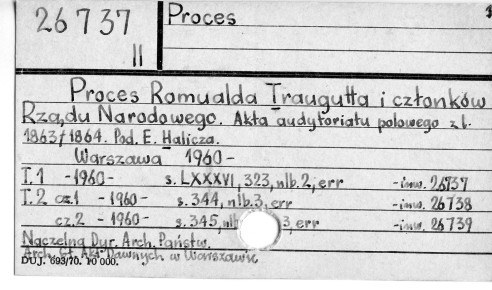 26737
II
Proces
Proces Romualda Traugutta i członków
Rządu Narodowego. Akta audytoriatu polowego z l.
1863/1864. Pod. E. Halicza.
Warszawa 1960-
T.1 -1960- s. LXXXVI, 323, nlb.2, err -inw. 26737
T.2 cz.1 -1960- s. 344, nlb.3, err -inw. 26738
cz.2 -1960- s. 345, nlb 3, err -inw. 26739
Naczelna Dyr. Arch. Państw.
Arch. Gł. Akt Dawnych w Warszawie
DUJ. 693/70. 10 000.